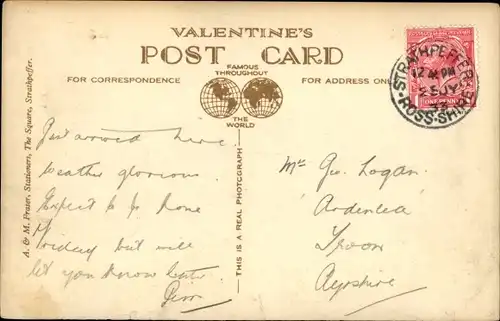 VALENTINE'S
POST CARD
FAMOUS
THROUGHOUT
THE
WORLD
FOR CORRESPONDENCE
FOR ADDRESS ONLY
STRATHPEFFER
ROSS-SHIRE
ONE PENNY
A. & M. Fraser, Stationers, The Square, Strathpeffer.
THIS IS A REAL PHOTOGRAPH
Just arrived here.
Weather glorious.
Expect to go home
Friday but will
let you know later
Mr Geo. Logan.
"Ardenlea"
Troon
Ayrshire